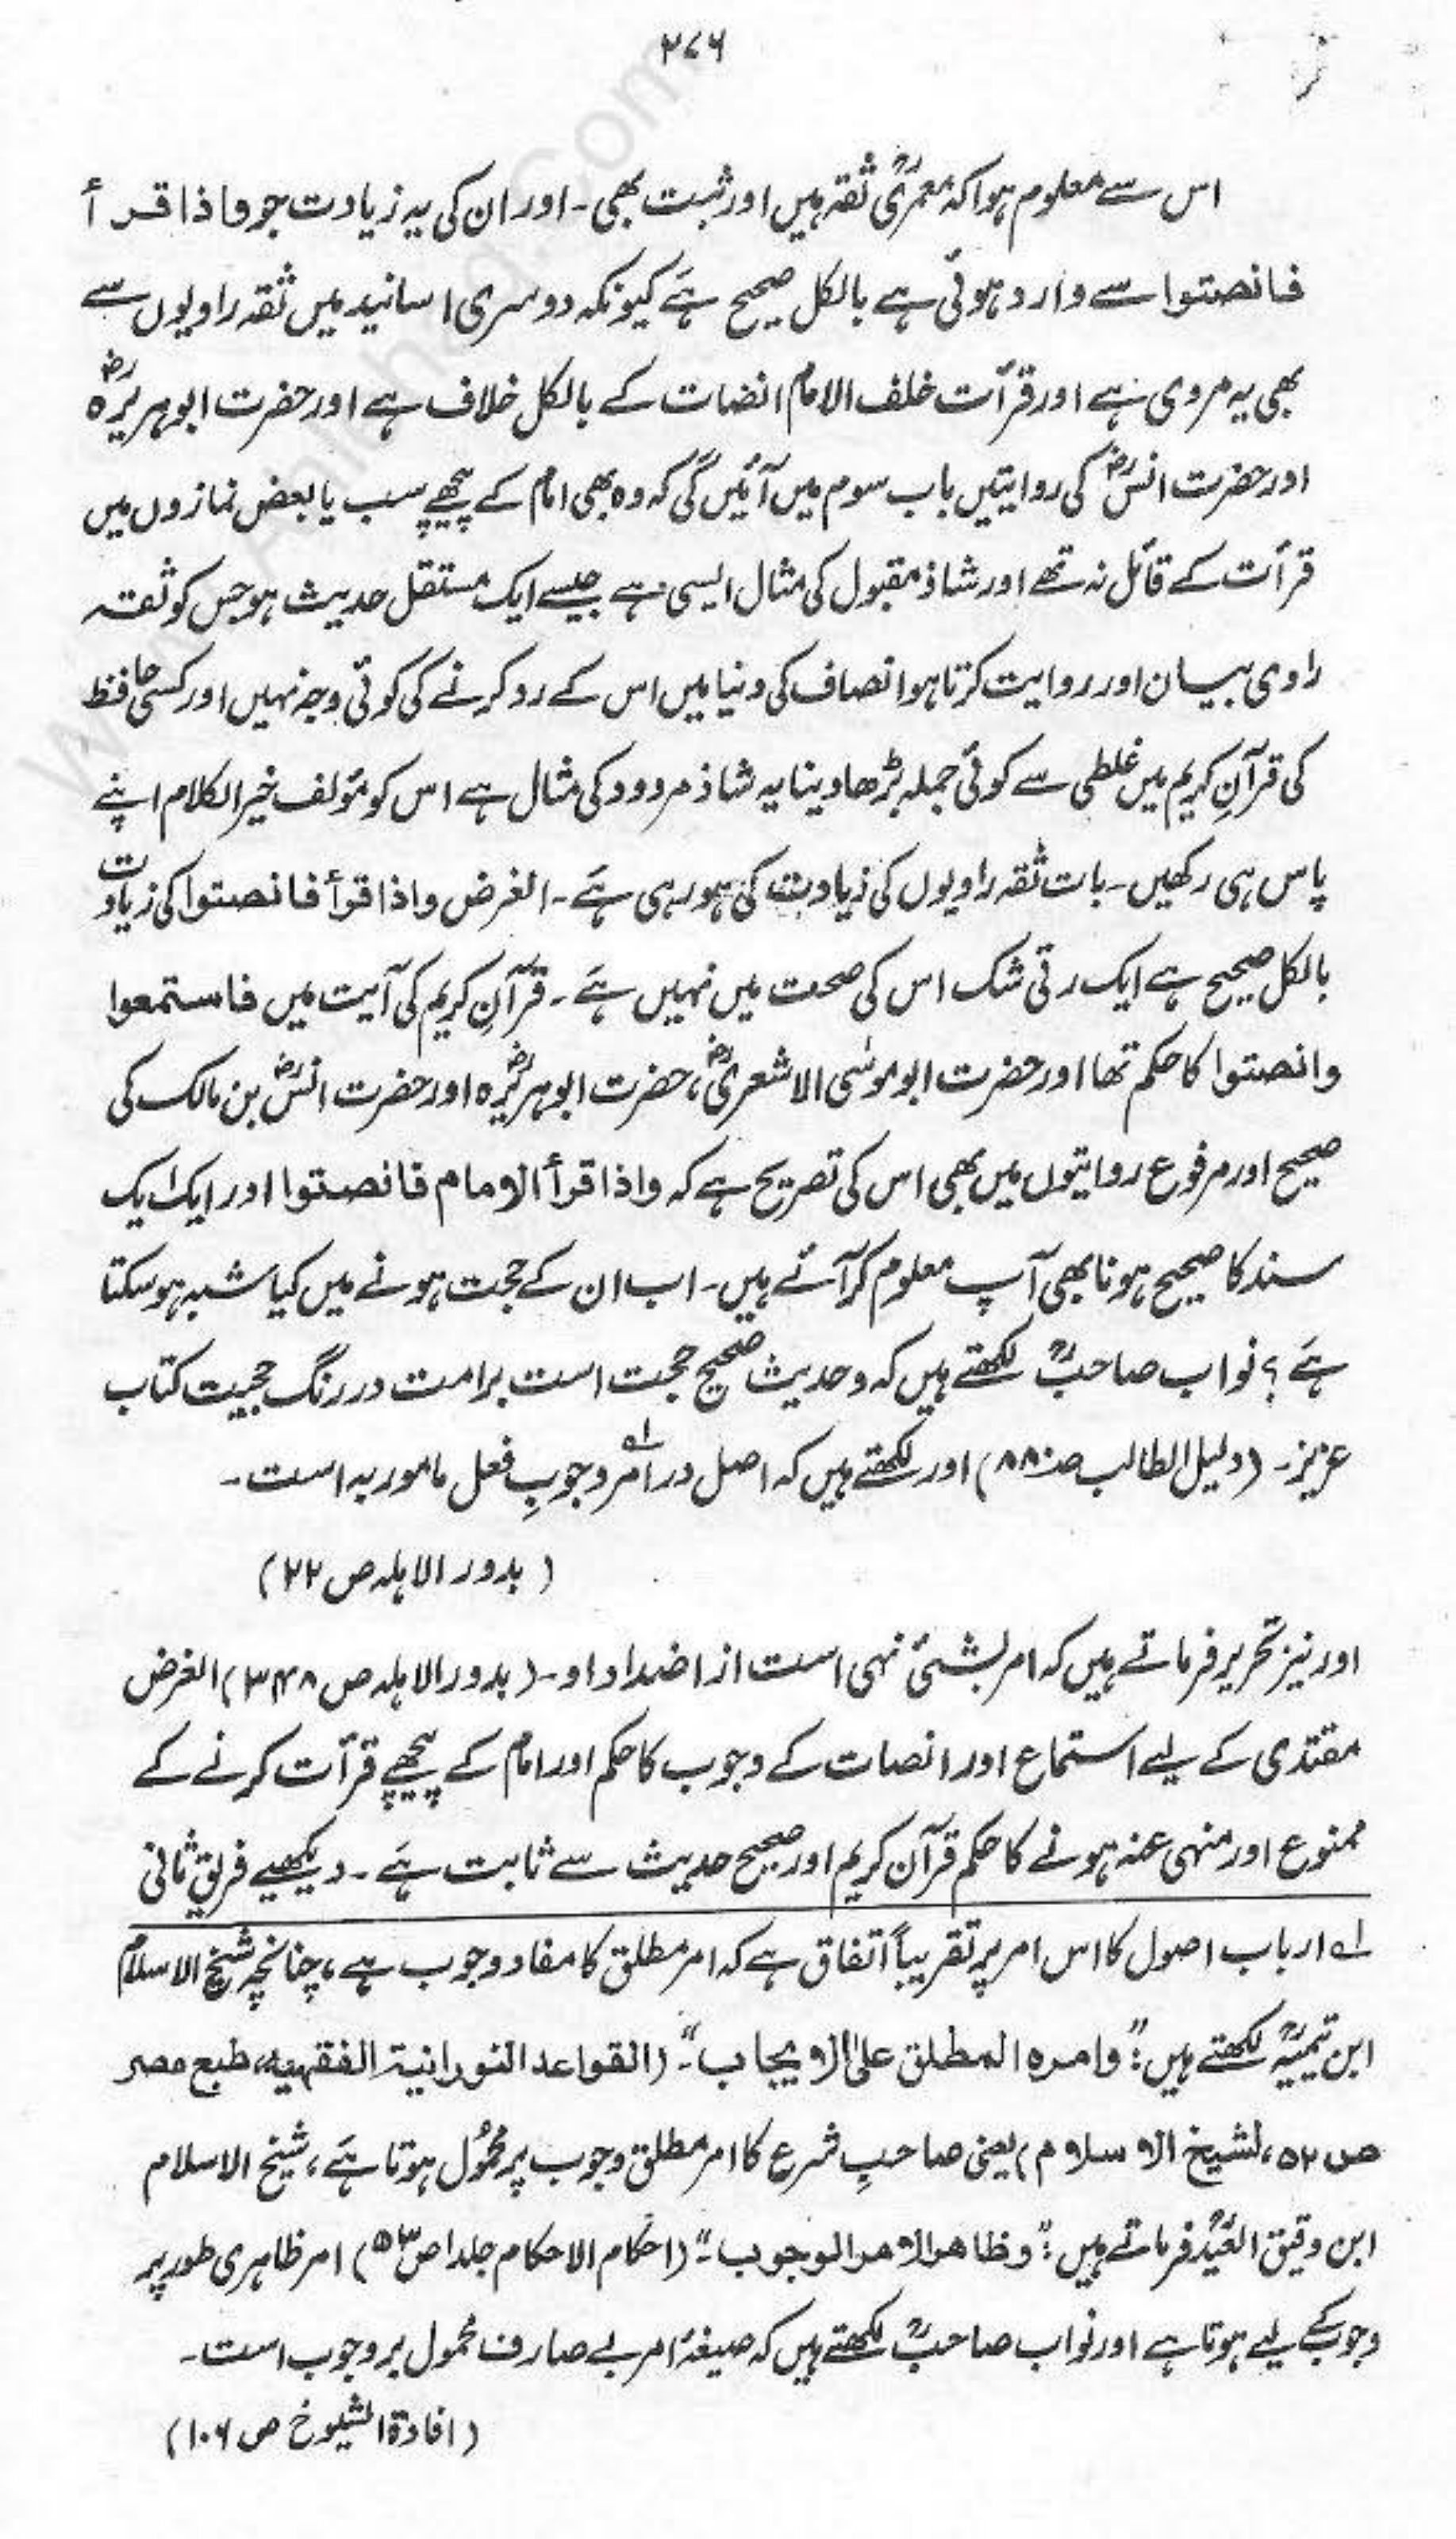 ۲۷۶
اس سے معلوم ہوا کہ معمریؒ ثقہ ہیں اور ثبت بھی۔ اور ان کی یہ زیادت جو واذا قرأ
فانصتوا سے وارد ہوئی ہے بالکل صحیح ہے کیونکہ دوسری اسانید میں ثقہ راویوں سے
بھی یہ مروی ہے اور قرأت خلف الامام انصات کے بالکل خلاف ہے اور حضرت ابوہریرہؓ
اور حضرت انسؓ کی روایتیں باب سوم میں آئیں گی کہ وہ بھی امام کے پیچھے سب یا بعض نمازوں میں
قرأت کے قائل نہ تھے اور شاذ مقبول کی مثال ایسی ہے جیسے ایک مستقل حدیث ہو جس کو ثقہ
راوی بیان اور روایت کرتا ہو انصاف کی دنیا میں اس کے رد کرنے کی کوئی وجہ نہیں اور کسی حافظ
کی قرآنِ کریم میں غلطی سے کوئی جملہ بڑھا دینا یہ شاذ مردود کی مثال ہے اس کو مؤلف خیر الکلام اپنے
پاس ہی رکھیں۔ بات ثقہ راویوں کی زیادت کی ہو رہی ہے۔ الغرض واذا قرأ فانصتوا کی زیادت
بالکل صحیح ہے ایک رتی شک اس کی صحت میں نہیں ہے۔ قرآنِ کریم کی آیت میں فاستمعوا
وانصتوا کا حکم تھا اور حضرت ابوموسٰی الاشعریؓ، حضرت ابوہریرہؓ اور حضرت انسؓ بن مالک کی
صحیح اور مرفوع روایتوں میں بھی اس کی تصریح ہے کہ واذا قرأ الامام فانصتوا اور ایک ایک
سند کا صحیح ہونا بھی آپ معلوم کر آئے ہیں۔ اب ان کے حجت ہونے میں کیا شبہ ہو سکتا
ہے؟ نواب صاحبؒ لکھتے ہیں کہ وحدیث صحیح حجت است برامت در رنگ حجیت کتاب
عزیز۔ (دلیل الطالب صـ۸۸۰) اور لکھتے ہیں کہ اصل در امر۱؎ وجوبِ فعل مامور بہ است۔
(بدور الاہلہ ص ۲۲)
اور نیز تحریر فرماتے ہیں کہ امر بشیٔ نہی است از اضداد او۔ (بدور الاہلہ ص ۳۴۸) الغرض
مقتدی کے لیے استماع اور انصات کے وجوب کا حکم اور امام کے پیچھے قرأت کرنے کے
ممنوع اور منہی عنہ ہونے کا حکم قرآن کریم اور صحیح حدیث سے ثابت ہے۔ دیکھیے فریق ثانی
۱؎ ارباب اصول کا اس امر پر تقریباً اتفاق ہے کہ امر مطلق کا مفاد وجوب ہے، چنانچہ شیخ الاسلام
ابن تیمیہؒ لکھتے ہیں: "وامرہ المطلق علی الایجاب"۔ (القواعد النورانیۃ الفقہیہ، طبع مصر
ص ۵۲، لشیخ الاسلام) یعنی صاحبِ شرع کا امر مطلق وجوب پر محمول ہوتا ہے، شیخ الاسلام
ابن دقیق العیدؒ فرماتے ہیں: "وظاھر الامر الوجوب"۔ (احکام الاحکام جلد۱ ص۵۳) امر ظاہری طور پر
وجوب کے لیے ہوتا ہے اور نواب صاحبؒ لکھتے ہیں کہ صیغۂ امر بے صارف محمول بر وجوب است۔
(افادۃ الشیوخ ص ۱۰۶)